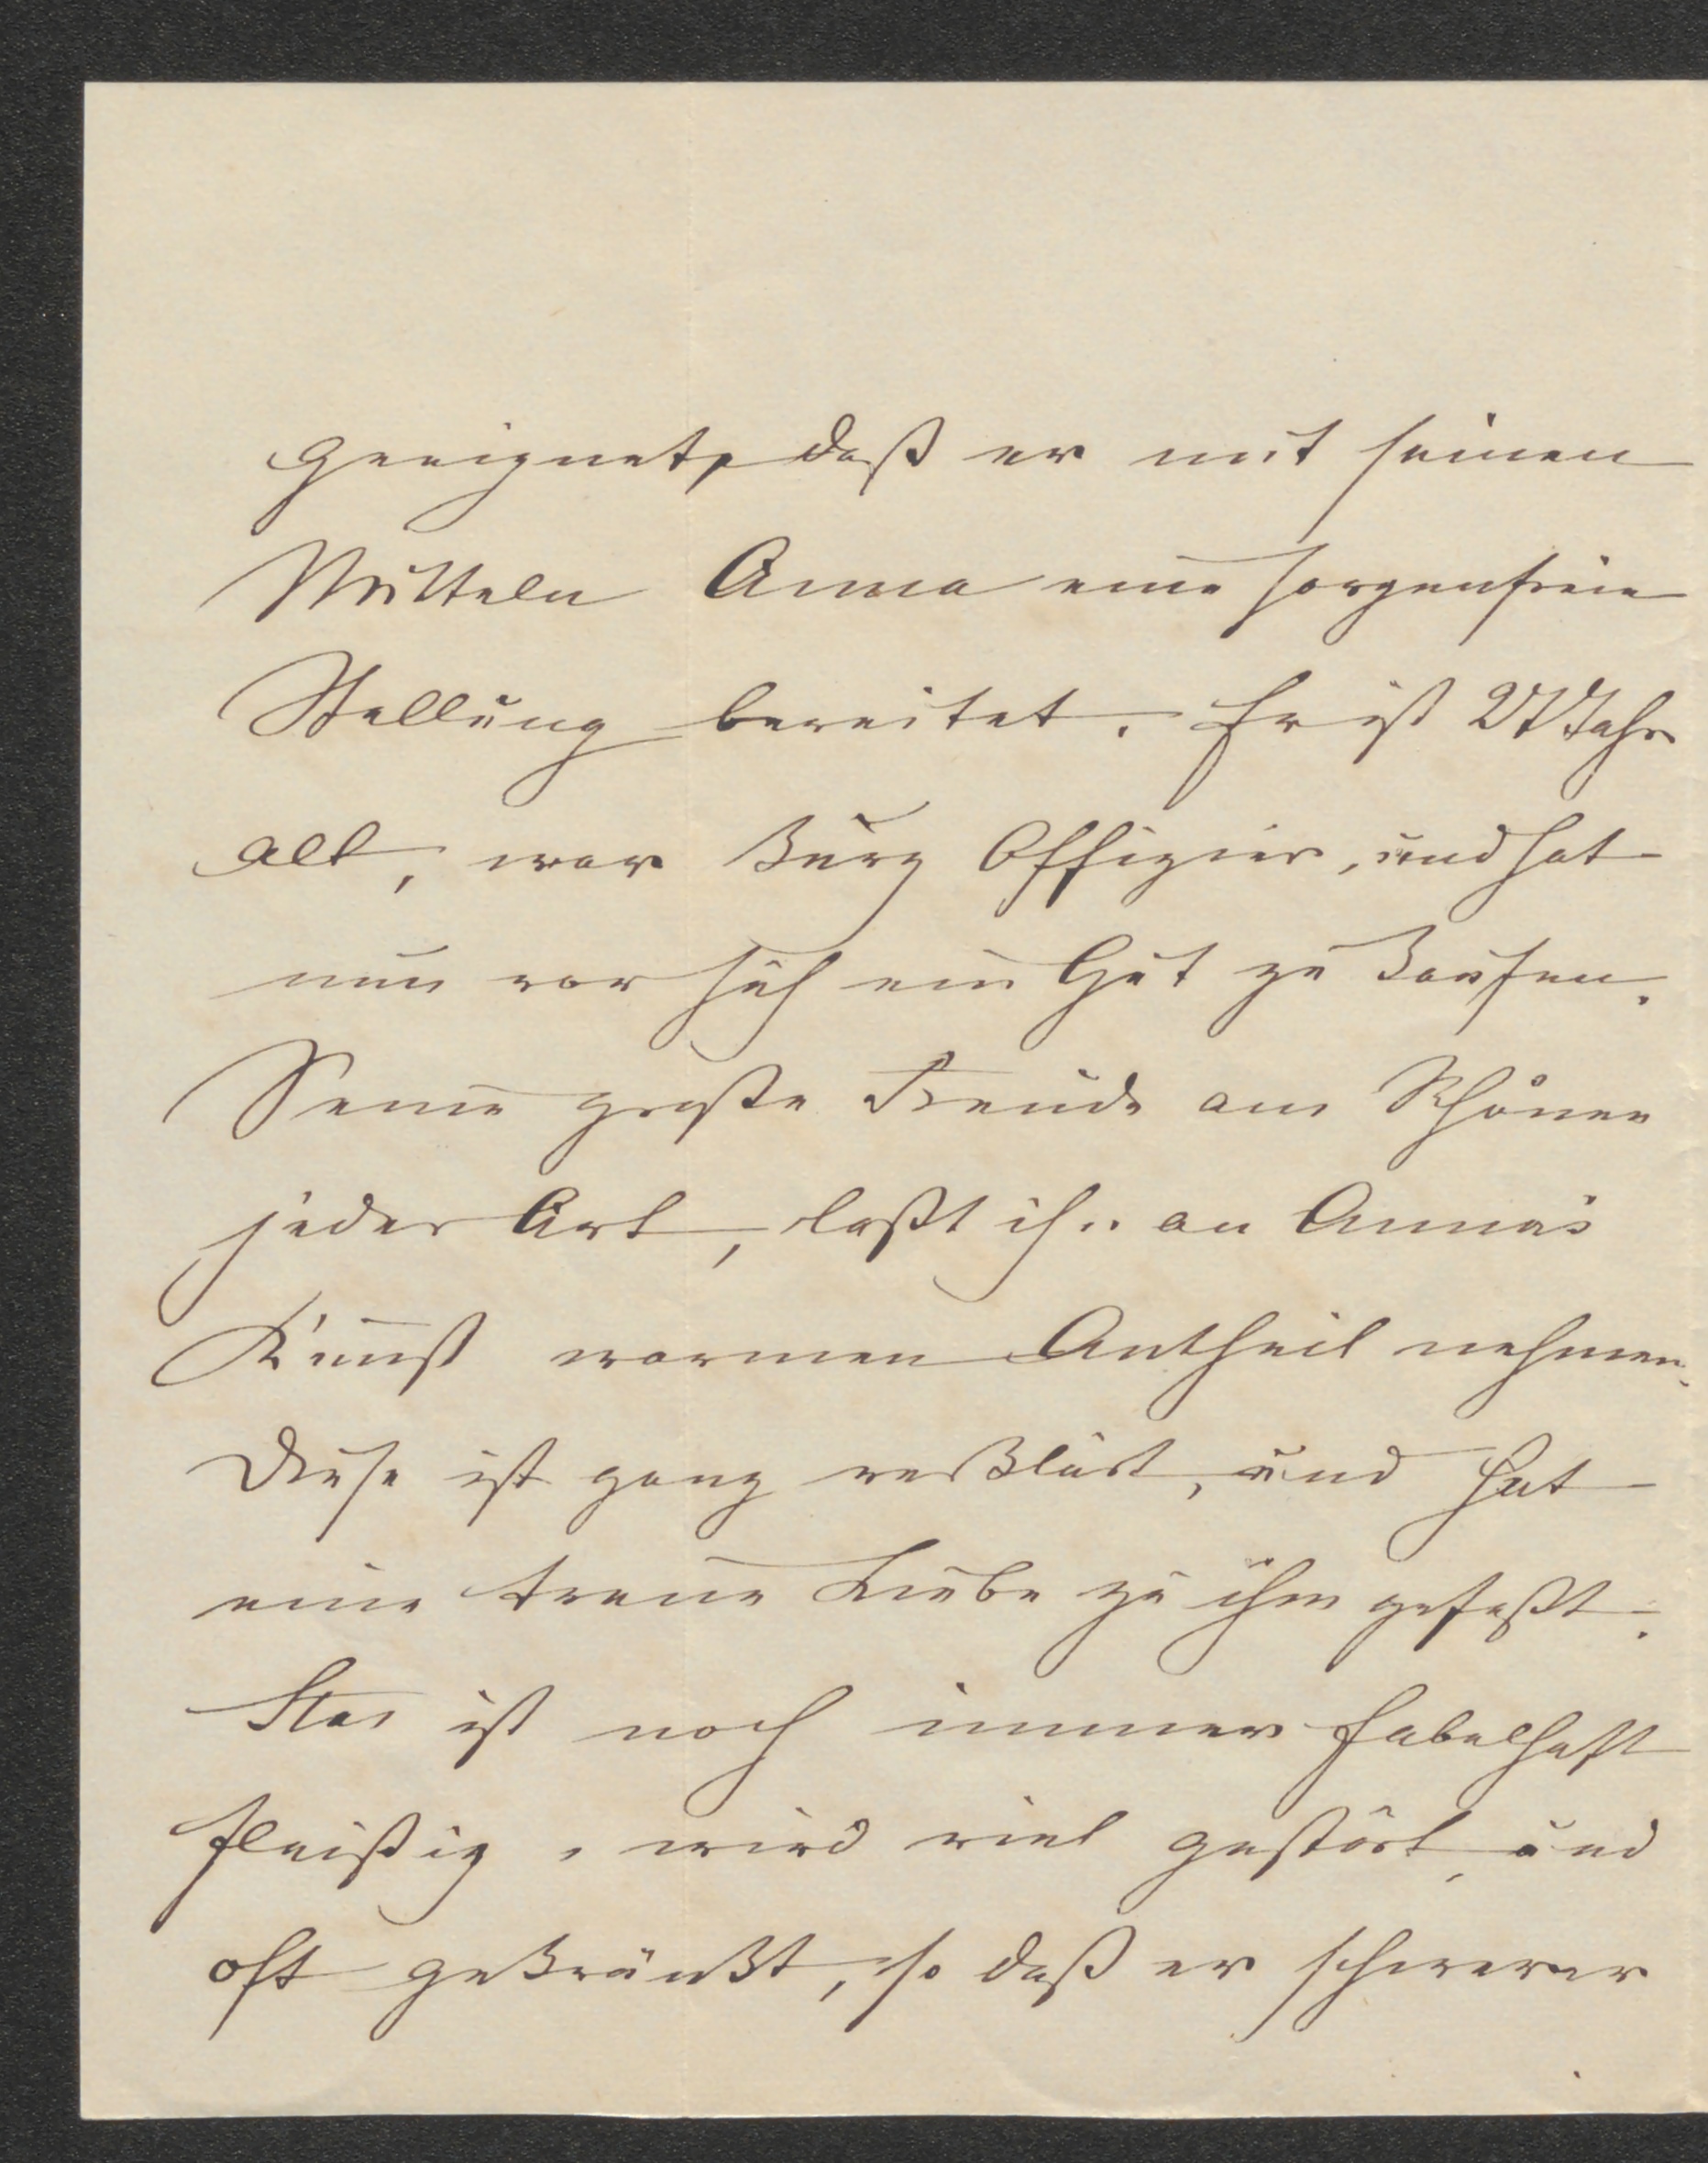 geeignet, daß er mit seinen
Mitteln Anna eine sorgenfreie
Stellung bereitet. Er ist 27 Jahr
alt, war kurz Offizier, und hat
nun vor sich ein Gut zu kaufen.
Seine große Freude am Schönen
jeder Art, laßt ihn an Anna's
Kunst warmen Antheil nehmen.
Diese ist ganz verklärt, und hat
eine treue Liebe zu ihm gefaßt.
ist noch immer fabelhaft
fleißig, wird viel gestört, und
oft gekränkt, so daß er schwerer